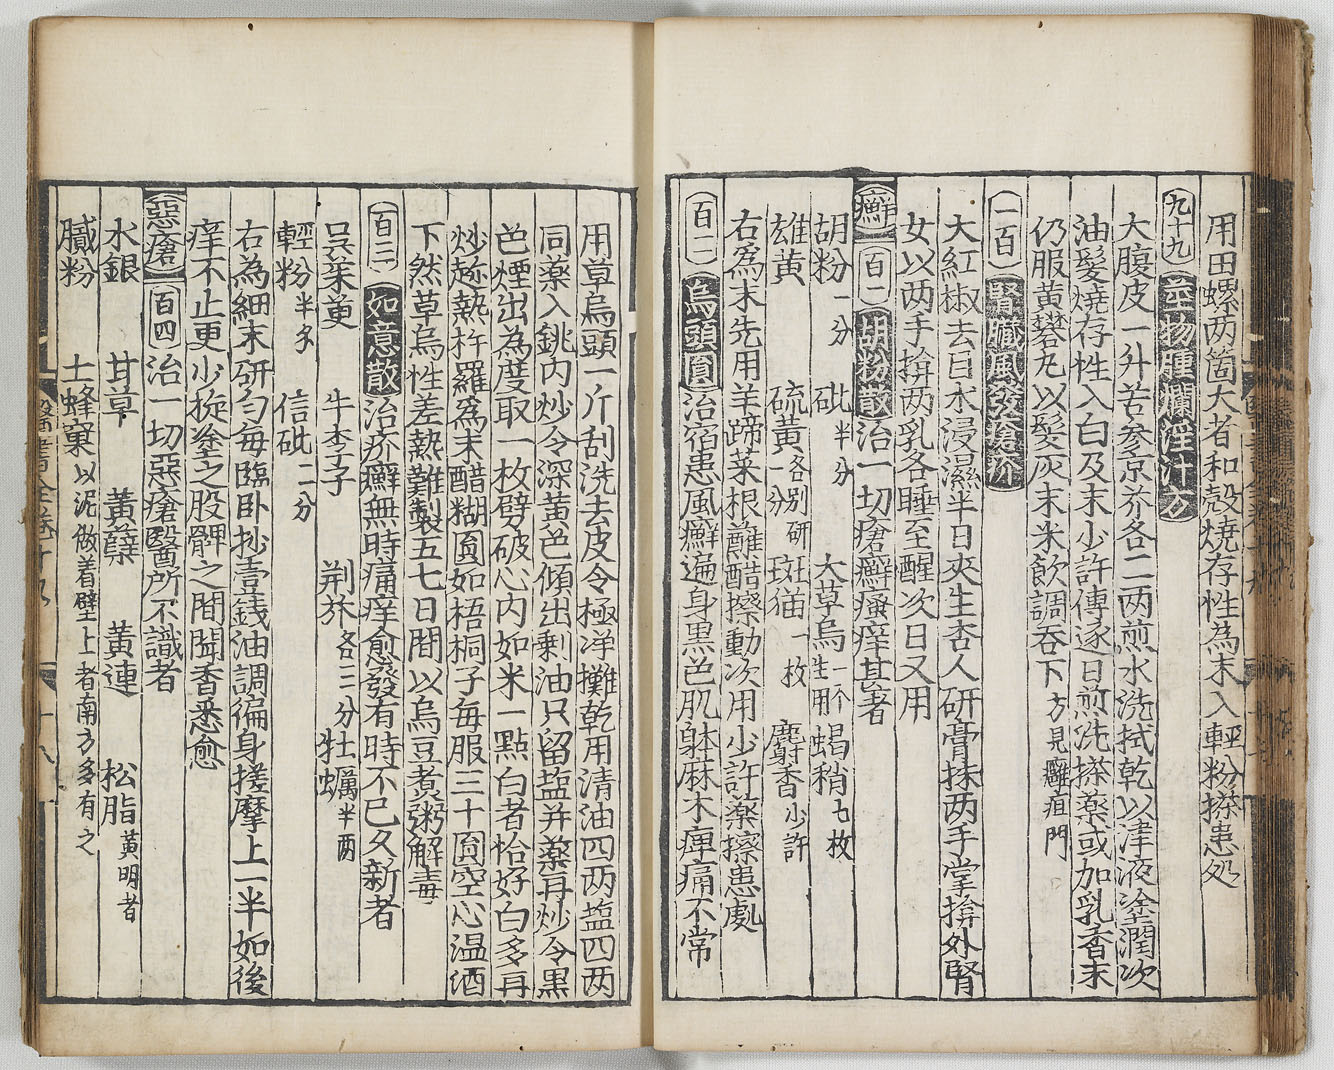 用田螺两箇大者和殼燒存性為末入輕粉搽患処
九十九 莖物腫爛淫汁方
大腹皮一升苦参京芥各二两煎水洗拭乾以津液塗潤次
油髮燒存性入白及末少許傳逐日煎洗搽藥或加乳香末
仍服黄礬丸以髮灰末米飲調吞下方見癰疽門
一百 腎臟風發瘡疥
大紅椒去目水浸濕半日夾生杏人研膏抹两手掌搿外腎
女以两手搿两乳各睡至醒次日又用
癬 百一 胡粉散 治一切瘡癬瘙痒甚者
胡粉一分 砒半分 大草烏一个生用 蝎稍七枚
雄黄 硫黄各一分别研 斑猫一枚 麝香少許
右為末先用羊蹄菜根蘸醋擦動次用少許藥擦患處
百二 烏頭圓 治宿患風癬遍身黒色肌躰麻木痺痛不常
用草烏頭一斤刮洗去皮令極淨攤乾用清油四两盐四两
同藥入銚内炒令深黄色傾出剩油只留盐并藥再炒令黒
色煙出為度取一枚劈破心内如米一點白者恰好白多再
炒趂熱杵羅為末醋糊圓如梧桐子每服三十圓空心温酒
下然草烏性差熱難製五七日間以烏豆煮粥解毒
百三 如意散 治疥癬無時痛痒愈發有時不已久新者
吴茱萸 牛李子 荆芥各二分 牡蠣半两
輕粉半多 信砒二分
右為細末研勻每臨卧抄壹錢油調徧身搓摩上一半如後
痒不止更少㨨塗之股髀之間聞香悉愈
惡瘡 百四 治一切惡瘡醫所不識者
水銀 甘草 黄蘗 黄連 松脂黄明者
膩粉 土蜂窠以泥做着壁上者南方多有之
醫書全卷十九
十八